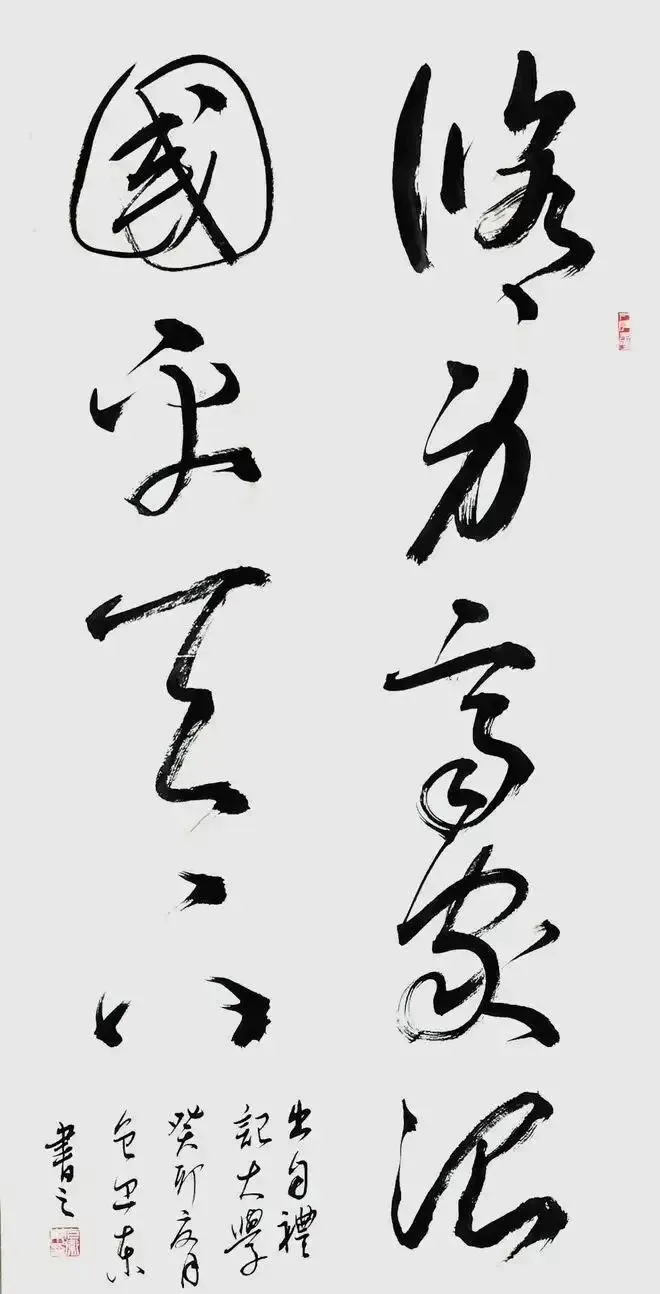 修身齊家治
國平天下
出自禮
記大學
癸卯夏月
包
書之